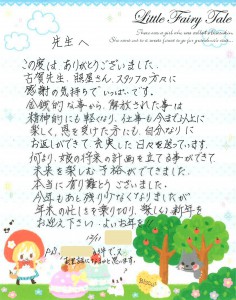 Little Fairy Tale
先生へ
この度は、ありがとうございました。
古賀先生、照屋さん、スタッフの方々に
感謝の気持ちでいっぱいです。
金銭的な事から、解放された事は
精神的にも軽くなり、仕事も今まで以上に
楽しく、恩を受けた方にも、自分なりに
お返しができて、充実した日々を送っています。
何より、娘の将来の計画を立てる事ができて
未来を楽しむ余裕がでてきました。
本当に有り難とうございました。
今年もあと残りわずかとなりましたが
年末の忙しさを乗り切り、楽しい新年を
お迎え下さい。よいお年を!!
12/11